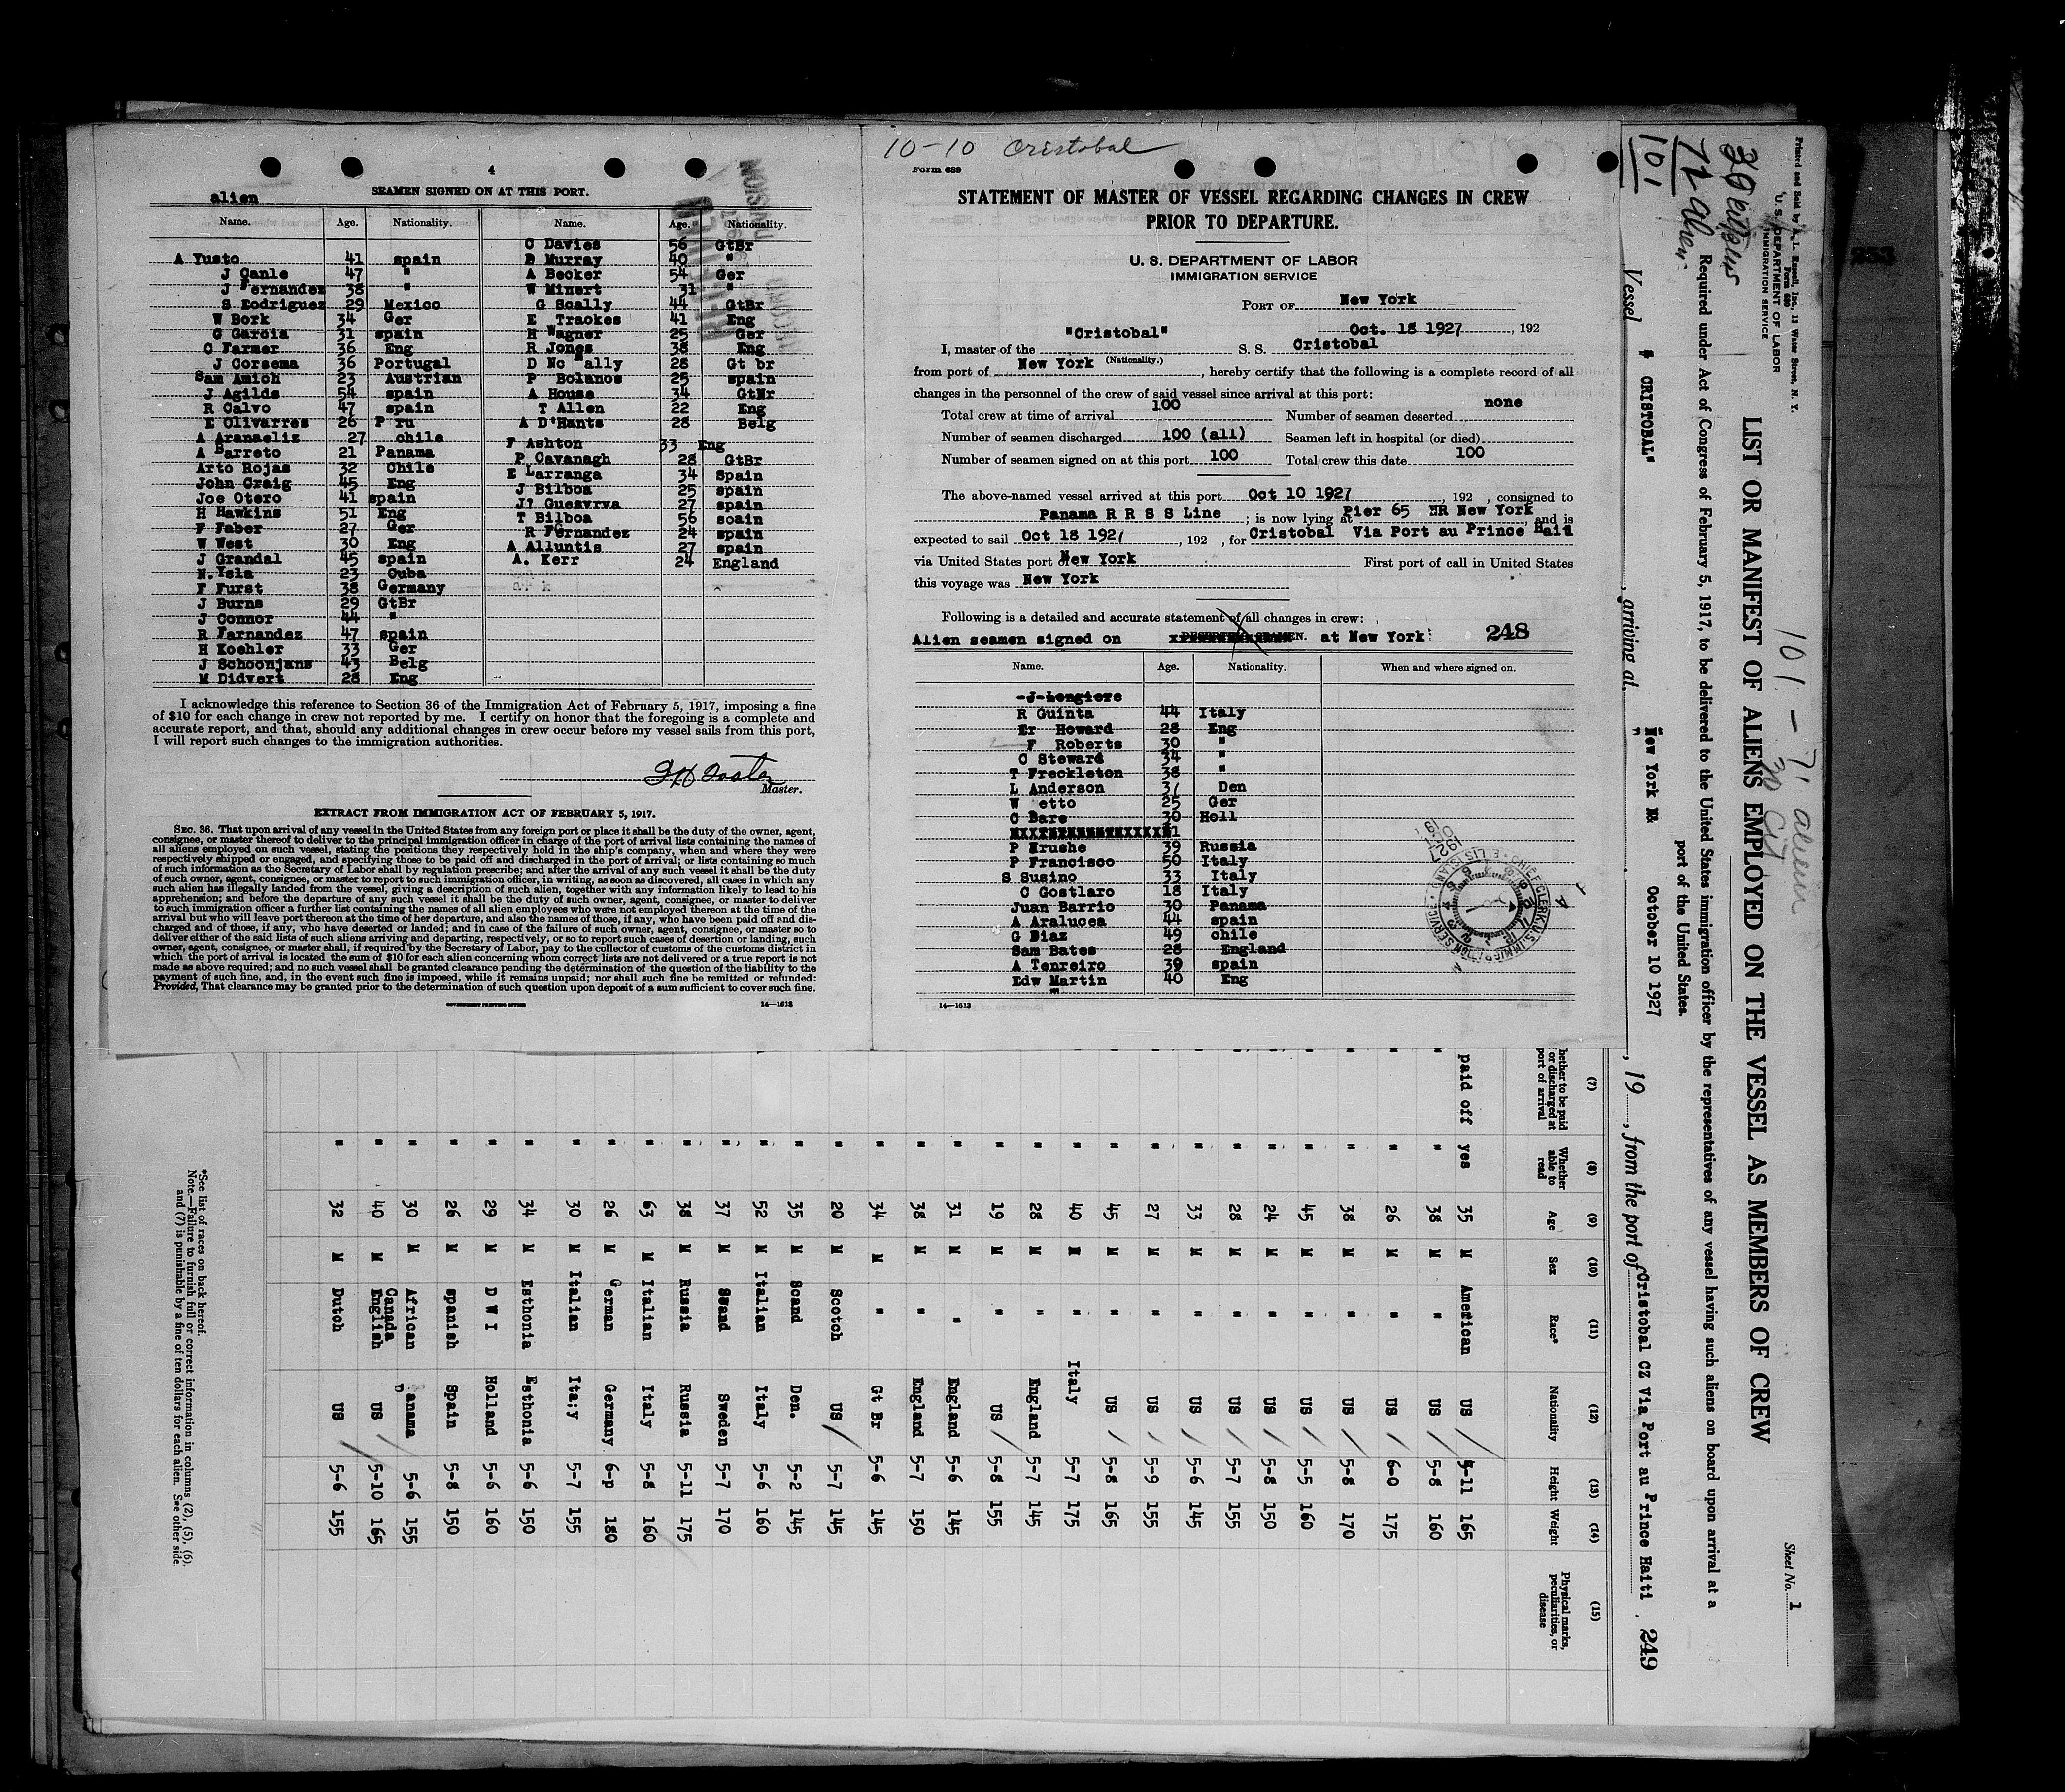 4
alien
SEAMEN SIGNED ON AT THIS PORT.
Name. Age. Nationality. Name. Age. Nationality.
C Davies 56 GtBr
A Yusto 41 spain D Murray 40 "
J Canle 47 " A Becker 54 Ger
J Fernandez 38 " W Minert 31 "
S Rodriguez 29 Mexico G Scally 44 GtBr
W Bork 34 Ger E Traokes 41 Eng
G Garcia 31 spain H Wagner 25 Ger
C Farmer 36 Eng R Jones 38 Eng
J Corsema 36 Portugal D Nc ally 28 Gt br
Sam Amich 23 Austrian P Bolanos 25 spain
J Agilda 54 spain A House 34 GtNr
R Calvo 47 spain T Allen 22 Eng
E Olivarres 26 P ru A D'Hants 28 Belg
A Aranaeliz 27 chile F Ashton 33 Eng
A Barreto 21 Panama P Cavanagh 28 GtBr
Arto Rojas 32 Chile E Larranga 34 Spain
John Craig 45 Eng J Bilboa 25 spain
Joe Otero 41 spain J' Guesvrva 27 spain
H Hawkins 51 Eng T Bilboa 56 soain
F Faber 27 Ger R Fernandez 24 spain
W West 30 Eng A Alluntis 27 spain
J Grandal 45 spain A. Kerr 24 England
N. Ysla 23 Cuba
F Furst 38 Germany
J Burns 29 GtBr
J Connor 44 "
R Farnandez 47 spain
H Koehler 33 Ger
J Schoonjans 43 Belg
M Didvert 28 Eng
I acknowledge this reference to Section 36 of the Immigration Act of February 5, 1917, imposing a fine
of $10 for each change in crew not reported by me. I certify on honor that the foregoing is a complete and
accurate report, and that, should any additional changes in crew occur before my vessel sails from this port,
I will report such changes to the immigration authorities.
Master.
EXTRACT FROM IMMIGRATION ACT OF FEBRUARY 5, 1917.
SEC. 36. That upon arrival of any vessel in the United States from any foreign port or place it shall be the duty of the owner, agent,
consignee, or master thereof to deliver to the principal immigration officer in charge of the port of arrival lists containing the names of
all aliens employed on such vessel, stating the positions they respectively hold in the ship's company, when and where they were
respectively shipped or engaged, and specifying those to be paid off and discharged in the port of arrival; or lists containing so much
of such information as the Secretary of Labor shall by regulation prescribe; and after the arrival of any such vessel it shall be the duty
of such owner, agent, consignee, or master to report to such immigration officer, in writing, as soon as discovered, all cases in which any
such alien has illegally landed from the vessel, giving a description of such alien, together with any information likely to lead to his
apprehension; and before the departure of any such vessel it shall be the duty of such owner, agent, consignee, or master to deliver
to such immigration officer a further list containing the names of all alien employees who were not employed thereon at the time of the
arrival but who will leave port thereon at the time of her departure, and also the names of those, if any, who have been paid off and dis-
charged and of those, if any, who have deserted or landed; and in case of the failure of such owner, agent, consignee, or master so to
deliver either of the said lists of such aliens arriving and departing, respectively, or so to report such cases of desertion or landing, such
owner, agent, consignee, or master, shall, if required by the Secretary of Labor, pay to the collector of customs of the customs district in
which the port of arrival is located the sum of $10 for each alien concerning whom correct lists are not delivered or a true report is not
made as above required; and no such vessel shall be granted clearance pending the determination of the question of the liability to the
payment of such fine, and, in the event such fine is imposed, while it remains unpaid; nor shall such fine be remitted or refunded:
Provided, That clearance may be granted prior to the determination of such question upon deposit of a sum sufficient to cover such fine.
GOVERNMENT PRINTING OFFICE 14—1613
10-10 Cristobal
Form 689
STATEMENT OF MASTER OF VESSEL REGARDING CHANGES IN CREW
PRIOR TO DEPARTURE.
U. S. DEPARTMENT OF LABOR
IMMIGRATION SERVICE
PORT OF New York
Oct. 18 1927, 192
I, master of the "Cristobal" S. S. Cristobal
(Nationality.)
from port of New York, hereby certify that the following is a complete record of all
changes in the personnel of the crew of said vessel since arrival at this port:
Total crew at time of arrival 100 Number of seamen deserted none
Number of seamen discharged 100 (all) Seamen left in hospital (or died)
Number of seamen signed on at this port 100 Total crew this date 100
The above-named vessel arrived at this port Oct 10 1927, 192 , consigned to
Panama R R S S Line; is now lying at Pier 65 NR New York, and is
expected to sail Oct 18 1927, 192 , for Cristobal Via Port au Prince Hait
via United States port of New York First port of call in United States
this voyage was New York
Following is a detailed and accurate statement of all changes in crew:
Alien seamen signed on at New York 248
Name. Age. Nationality. When and where signed on.
J Longiere
R Guinta 44 Italy
Er Howard 28 Eng
F Roberts 30 "
C Steward 34 "
T Freckleton 38 "
L Anderson 37 Den
W etto 25 Ger
C Bare 30 Holl
P Krushe 39 Russia
P Francisco 50 Italy
S Susino 33 Italy
C Gostlaro 18 Italy
Juan Barrio 30 Panama
A Aralucea 44 spain
G Diaz 49 chile
Sam Bates 28 England
A Tenreiro 39 spain
Edw Martin 40 Eng
14—1613
Printed and Sold by A. L. Russell, Inc., 12 Water Street, N. Y.
Form 680
U. S. DEPARTMENT OF LABOR
IMMIGRATION SERVICE
72 alien
101
101 - 71 alien
30 Cit
Sheet No. 1
LIST OR MANIFEST OF ALIENS EMPLOYED ON THE VESSEL AS MEMBERS OF CREW
Required under Act of Congress of February 5, 1917, to be delivered to the United States immigration officer by the representatives of any vessel having such aliens on board upon arrival at a
port of the United States.
Vessel " CRISTOBAL", arriving at New York October 10 1927, 19 , from the port of Cristobal CZ Via Port au Prince Haiti , 249
(7) (8) (9) (10) (11) (12) (13) (14) (15)
hether to be paid or discharged at port of arrival Whether able to read Age Sex Race* Nationality Height Weight Physical marks, peculiarities, or disease
paid off yes 35 M American US 5-11 165
" " 38 M " US 5-8 160
" " 26 M " US 6-0 175
" " 38 M " US 5-8 170
" " 45 M " US 5-5 160
" " 24 M " US 5-8 150
" " 28 M " US 5-7 155
" " 33 M " US 5-6 145
" " 27 M " US 5-9 155
" " 45 M " US 5-8 165
" " 40 M Italy 5-7 175
" " 28 M " England 5-7 145
" " 19 M " US 5-8 155
" " 31 M " England 5-6 145
" " 38 M " England 5-7 150
" " 34 M " Gt Br 5-6 145
" 20 M Scotch US 5-7 145
" 35 M Scand Den. 5-2 145
" 52 M Italian Italy 5-6 160
" 37 M Swand Sweden 5-7 170
" 38 M Russia Russia 5-11 175
" 63 M Italian Italy 5-8 160
" 26 M German Germany 6-p 180
" 30 M Italian Ita;y 5-7 155
" 34 M Esthonia Esthonia 5-6 150
" 29 M D W I Holland 5-6 160
" 26 M spanish Spain 5-8 150
" 30 M African Panama 5-6 155
" 40 M Canada English US 5-10 165
" 32 M Dutch US 5-6 155
*See list of races on back hereof.
Note.—Failure to furnish full or correct information in columns (2), (5), (6),
and (7) is punishable by a fine of ten dollars for each alien. See other side